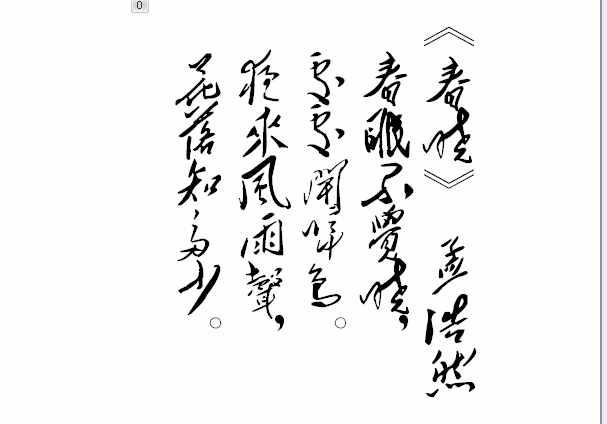 0
《春曉》孟浩然
春眠不覺曉，
處處聞啼鳥。
夜來風雨聲，
花落知多少。